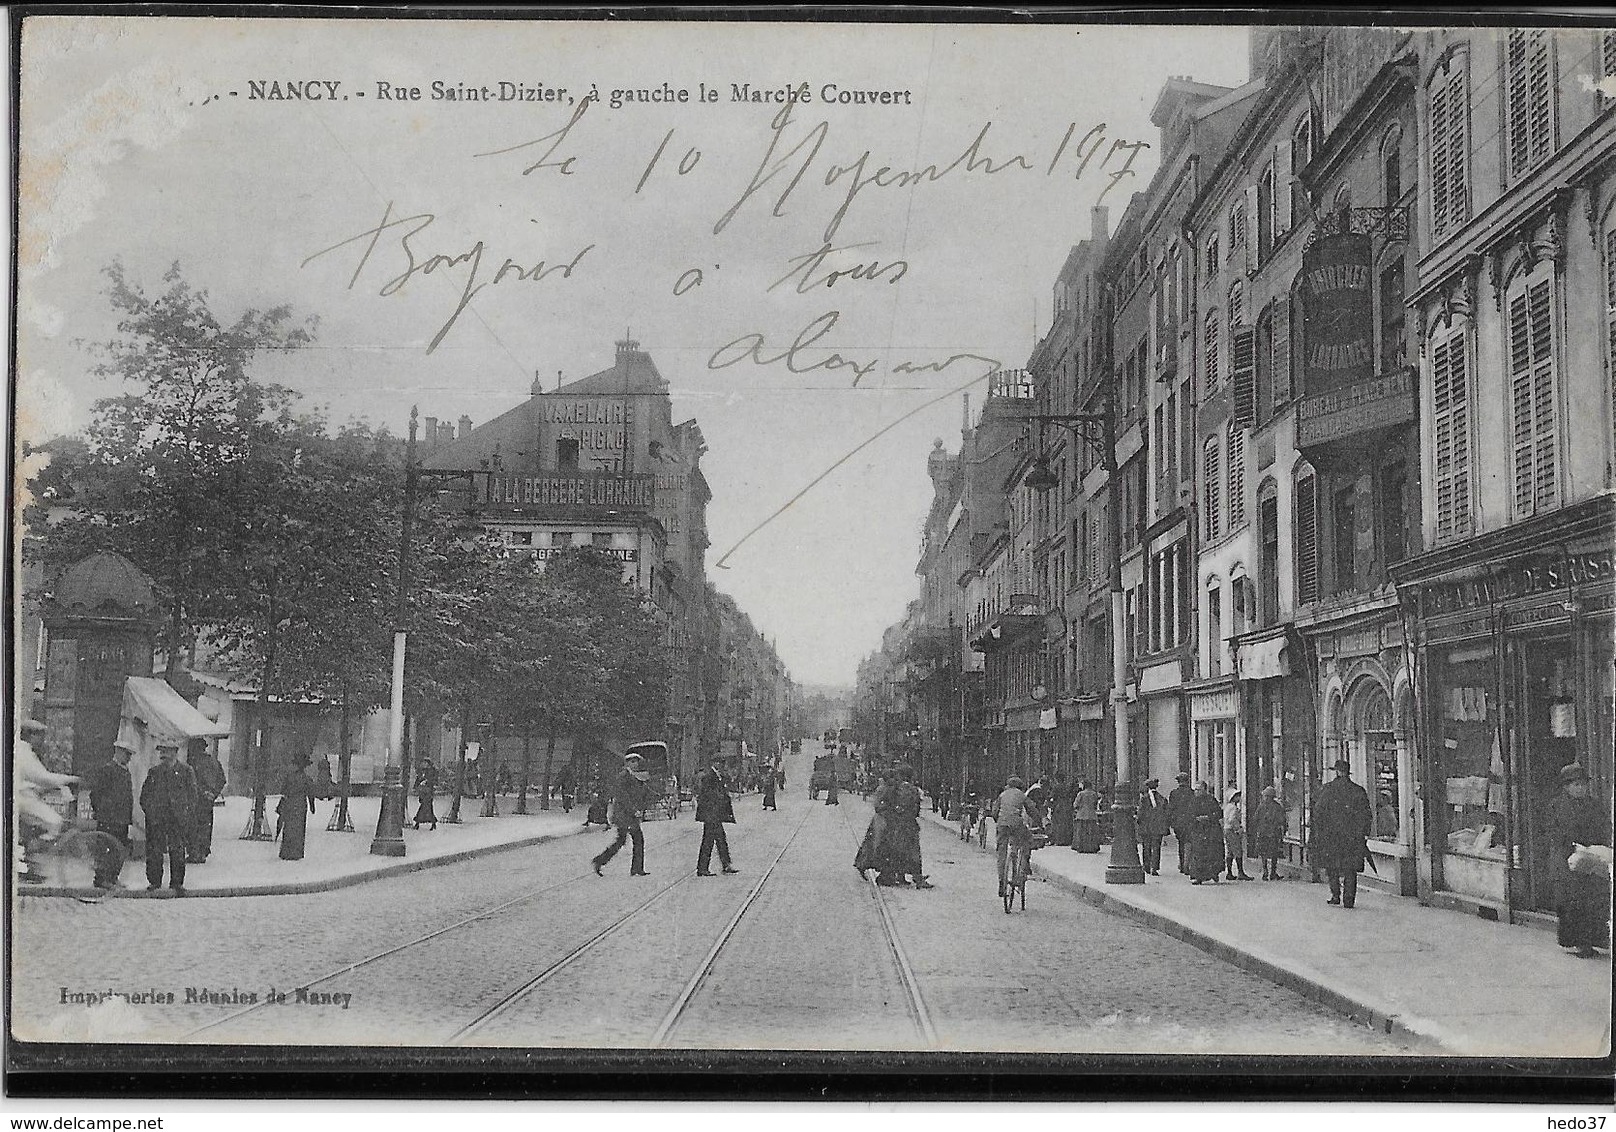 . - NANCY. - Rue Saint-Dizier, à gauche le Marché Couvert
Le 10 Novembre 1917
Bonjour à tous
VAXELAIRE
PIGNOT
A LA BERGERE LORRAINE
LORRAINES
BUREAU DE PLACEMENT
VILLE DE STRASB
Imprimeries Réunies de Nancy
www.delcampe.net
hedo37